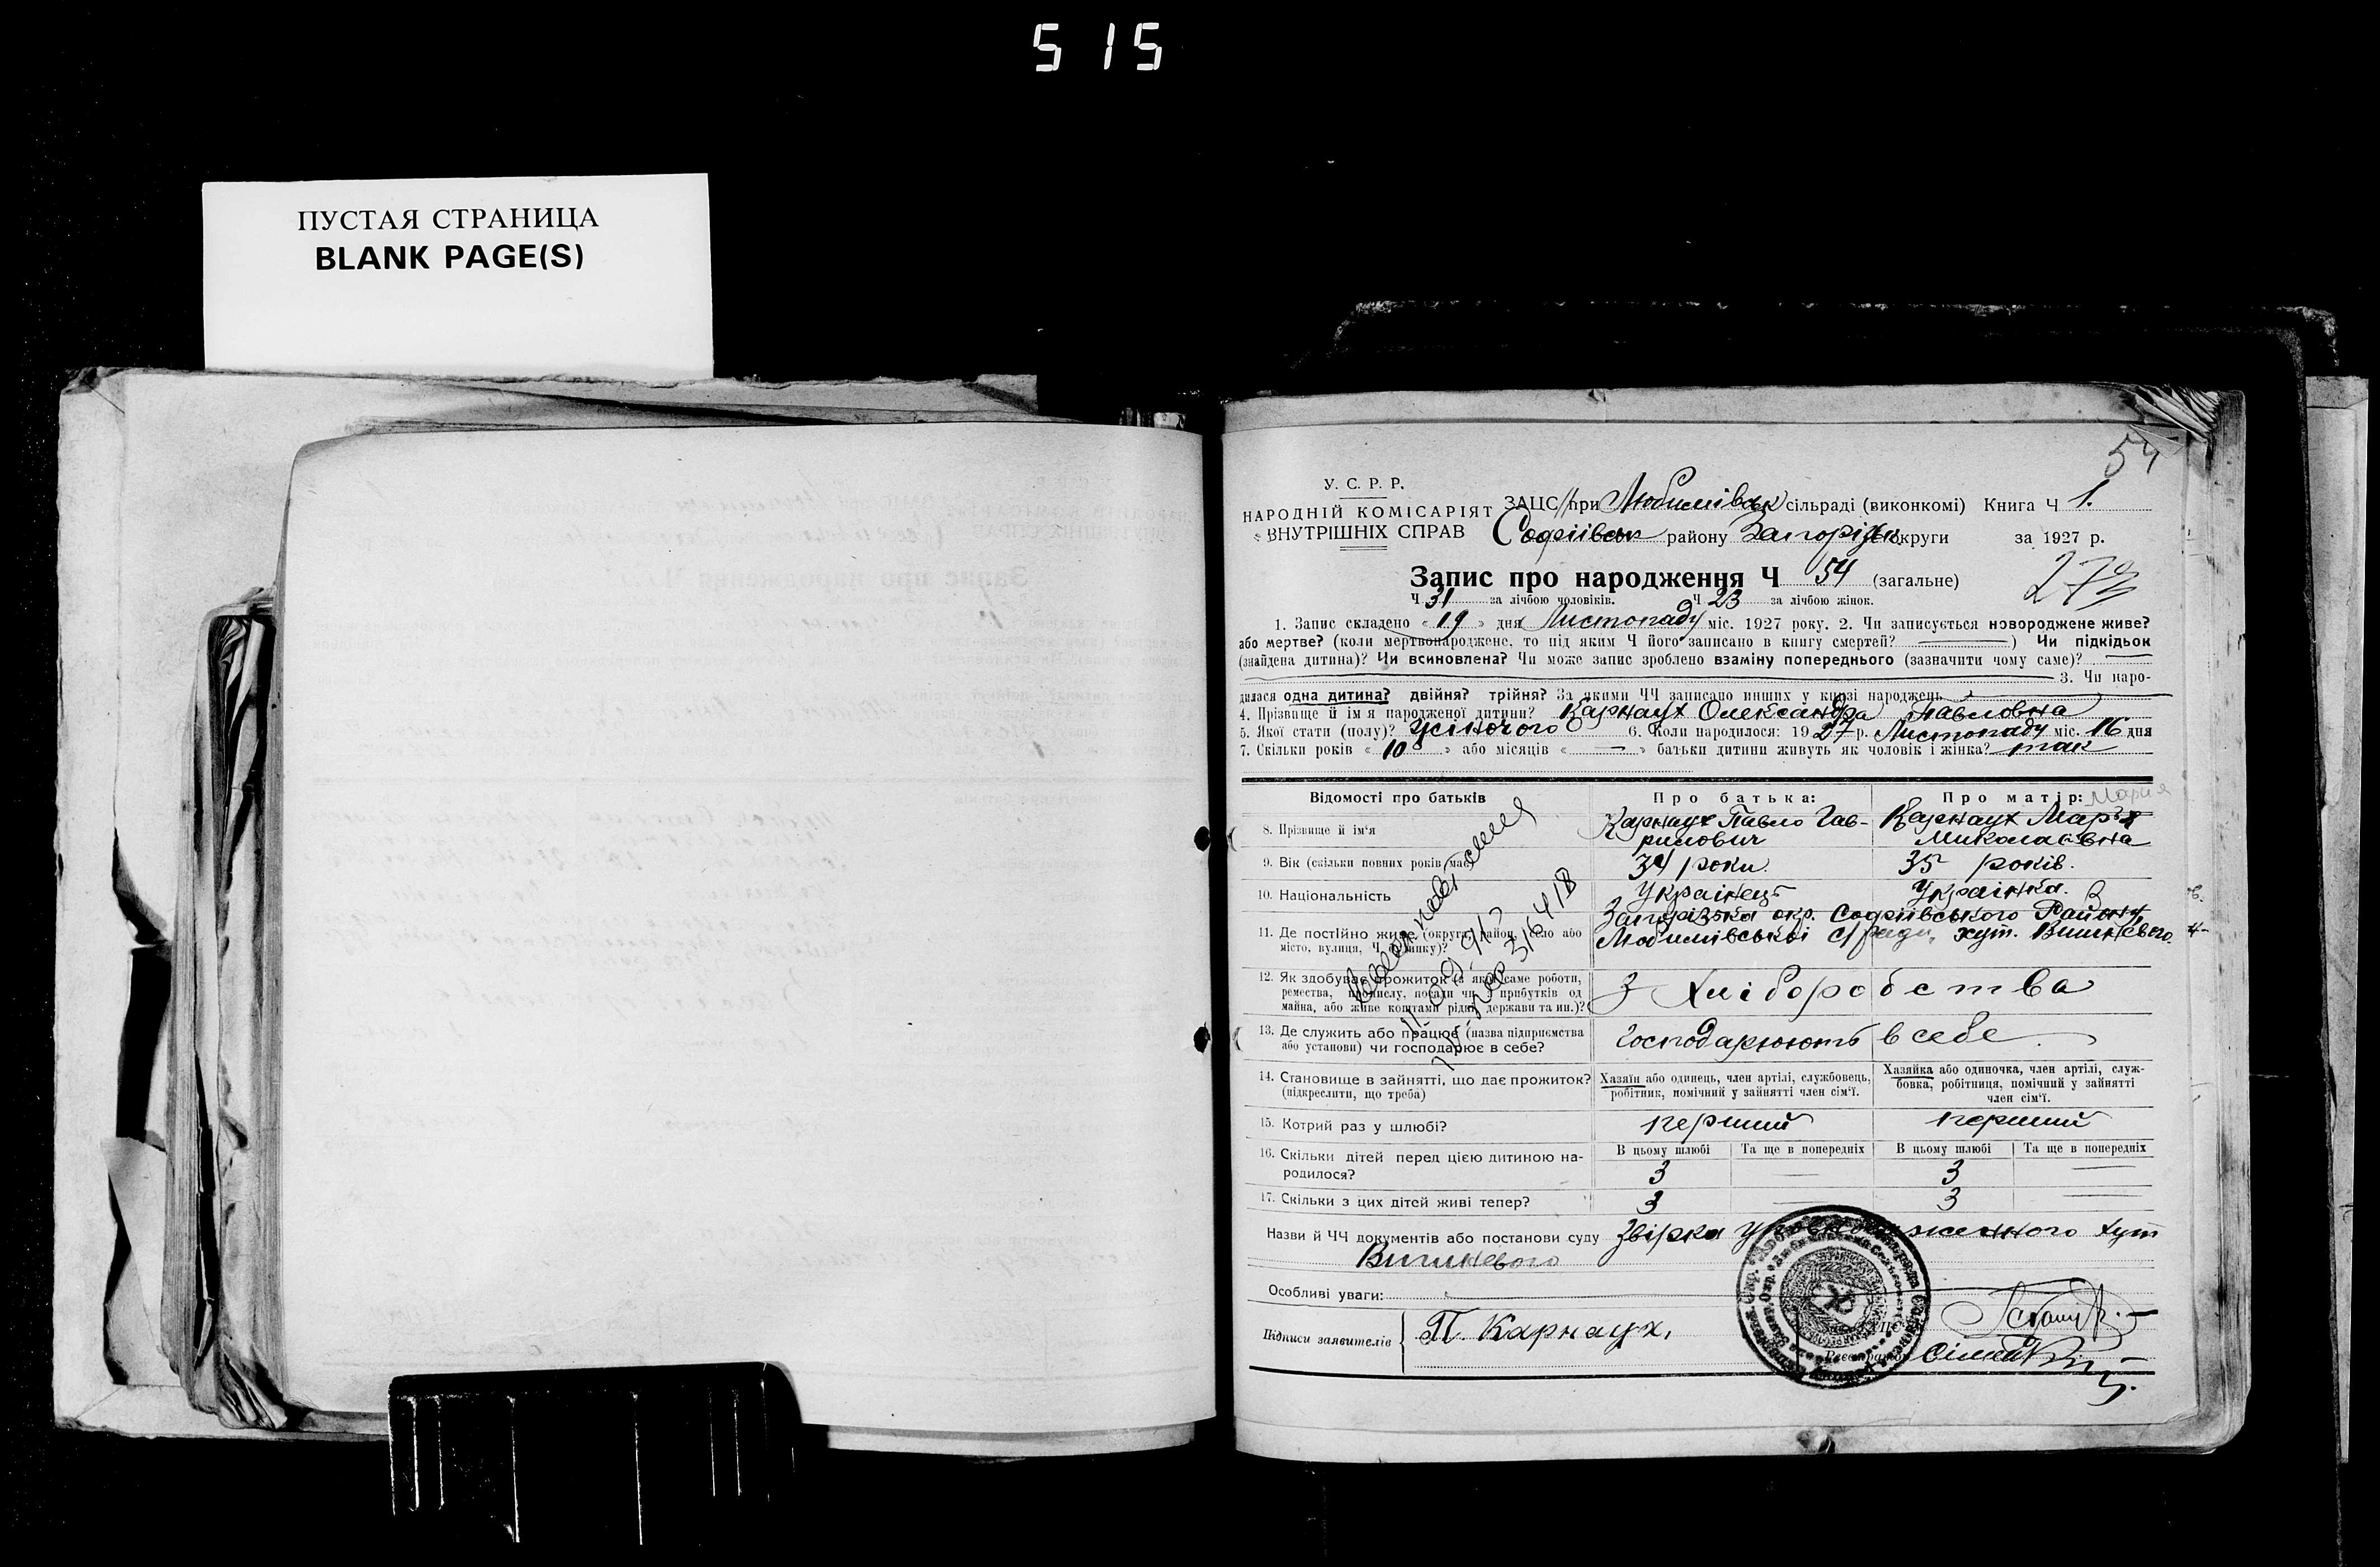 515
ПУСТАЯ СТРАНИЦА
BLANK PAGE(S)
54
У. С. Р. Р.
НАРОДНІЙ КОМІСАРІЯТ
ВНУТРІШНІХ СПРАВ
ЗАЦС при Любимівськ сільраді (виконкомі) Книга Ч 1.
Софіївськ району Запоріжс округи за 1927 р.
Запис про народження Ч 54 (загальне)
Ч 31 за лічбою чоловіків. Ч 23 за лічбою жінок.
1. Запис складено « 19 » дня Листопаду міс. 1927 року. 2. Чи записується новороджене живе?
або мертве? (коли мертвонароджене, то під яким Ч його записано в книгу смертей? ) Чи підкідьок
(знайдена дитина)? Чи всиновлена? Чи може запис зроблено взаміну попереднього (зазначити чому саме)?
3. Чи наро-
дилася одна дитина? двійня? трійня? За якими ЧЧ записано инших у книзі народжень
4. Прізвище й ім'я народженої дитини? Карнаух Олександра Павловна
5. Якої стати (полу)? Жіночого 6. Коли народилося: 1927 р. Листопаду міс. 16 дня
7. Скільки років « 10 » або місяців « — » батьки дитини живуть як чоловік і жінка? так
Відомості про батьків Про батька: Про матір: Мария
8. Прізвище й ім'я Карнаух Павло Гав- Карнаух Марья
рилович Миколаївна
9. Вік (скільки повних років має) 34 роки. 35 років.
10. Національність Українець Українка.
Запорізька окр. Софіївського Району
11. Де постійно живе (округа, район, село або
місто, вулиця, Ч будинку)? Любимівської с/ради, хут. Вишневого.
12. Як здобуває прожиток (з якої саме роботи,
ремества, промислу, посади чи з прибутків од
майна, або живе коштами рідні, держави та ин.)? З Хліборобства
13. Де служить або працює (назва підприємства
або установи) чи господарює в себе? Господарюють в себе.
14. Становище в зайнятті, що дає прожиток?
(підкреслити, що треба)
Хазяїн або одинець, член артілі, службовець,
робітник, помічний у зайнятті член сім'ї.
Хазяйка або одиночка, член артілі, служ-
бовка, робітниця, помічний у зайнятті
член сім'ї.
15. Котрий раз у шлюбі? перший перший
16. Скільки дітей перед цією дитиною на-
родилося?
В цьому шлюбі Та ще в попередніх В цьому шлюбі Та ще в попередніх
3 — 3 —
17. Скільки з цих дітей живі тепер? 3 — 3 —
Назви й ЧЧ документів або постанови суду Звірка хут
Вишневого
Особливі уваги:
Підписи заявителів П. Карнаух.